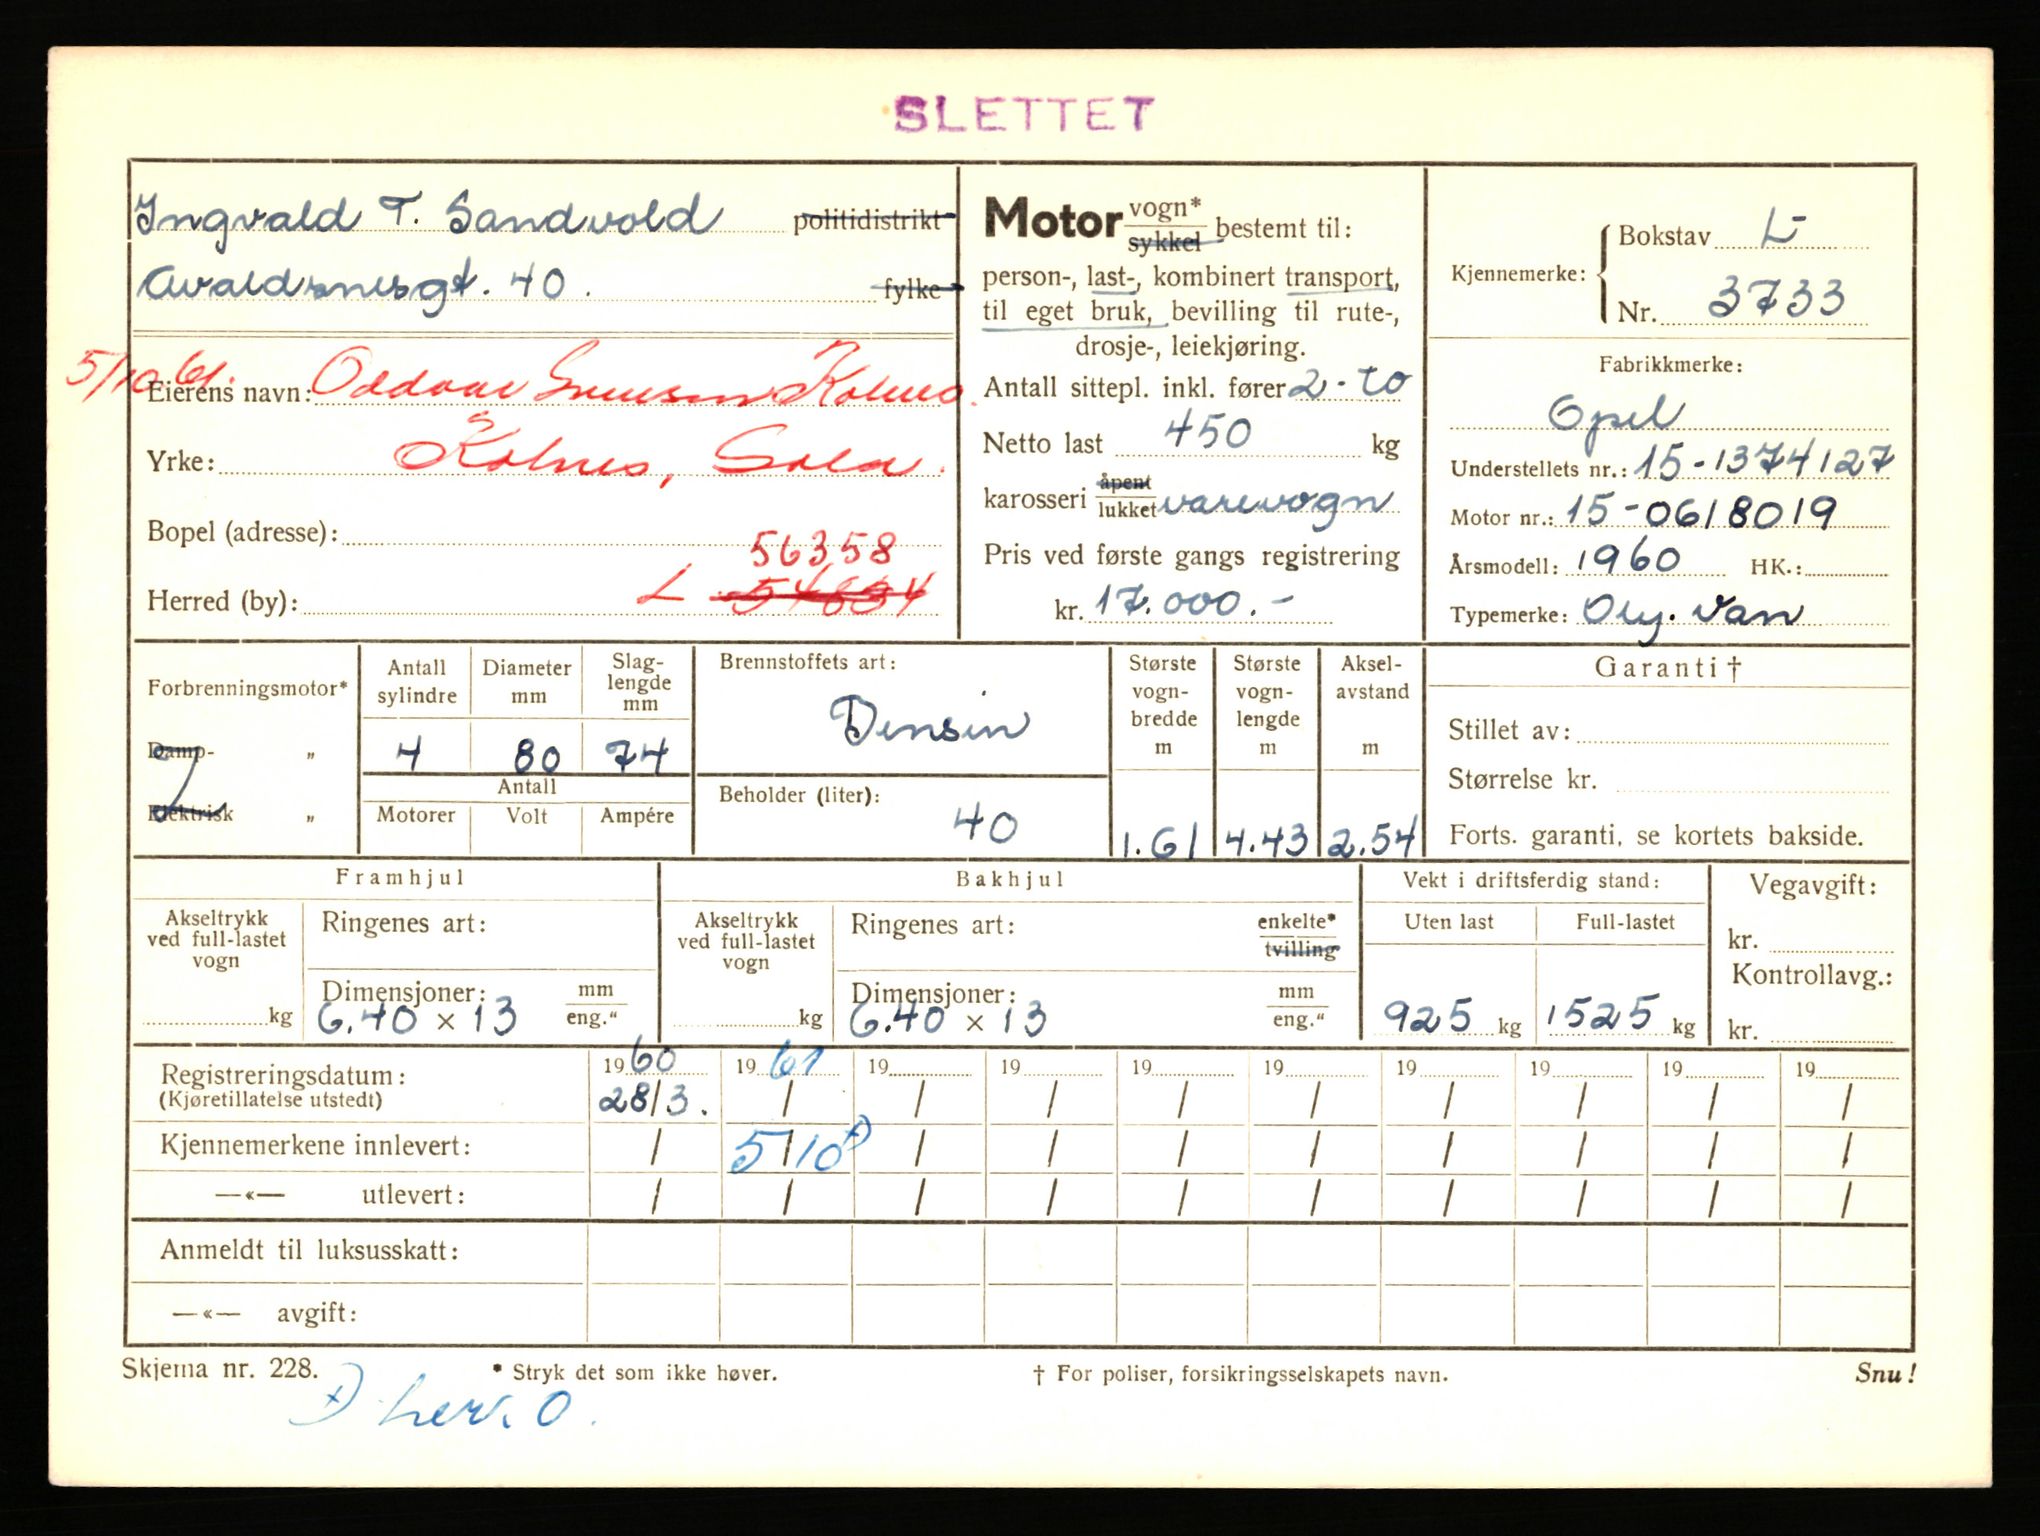 SLETTET
Ingvald T. Sandvold politidistrikt
Avaldsnesgt. 40. fylke
5/10 61.
Eierens navn: Oddvar Kolnes
Yrke: Kolnes, Sola.
Bopel (adresse):
56358
Herred (by): L 54634
Motor vogn* sykkel bestemt til:
person-, last-, kombinert transport,
til eget bruk, bevilling til rute-,
drosje-, leiekjøring.
Antall sittepl. inkl. fører 2 - to
Netto last 450 kg
karosseri åpent lukket varevogn
Pris ved første gangs registrering
kr. 17.000.-
Kjennemerke: Bokstav L-
Nr. 3733
Fabrikkmerke:
Opel
Understellets nr.: 15-1374127
Motor nr.: 15-0618019
Årsmodell: 1960 HK.:
Typemerke: Oly. Van
Forbrenningsmotor*
Damp- „
Elektrisk „
Antall sylindre
Diameter mm
Slag-lengde mm
4 80 74
Antall
Motorer Volt Ampére
Brennstoffets art:
Bensin
Beholder (liter):
40
Største vogn-bredde m
1.61
Største vogn-lengde m
4.43
Aksel-avstand m
2.54
Garanti †
Stillet av:
Størrelse kr.
Forts. garanti, se kortets bakside.
Framhjul
Akseltrykk ved full-lastet vogn
kg
Ringenes art:
Dimensjoner: mm eng."
6.40 x 13
Bakhjul
Akseltrykk ved full-lastet vogn
kg
Ringenes art: enkelte* tvilling
Dimensjoner: mm eng."
6.40 x 13
Vekt i driftsferdig stand:
Uten last Full-lastet
925 kg 1525 kg
Vegavgift:
kr.
Kontrollavg.:
kr.
Registreringsdatum: 1960 1961 19 19 19 19 19 19 19 19
(Kjøretillatelse utstedt) 28/3. / / / / / / / / /
Kjennemerkene innlevert: / 5/10 x) / / / / / / / /
—«— utlevert: / / / / / / / / / /
Anmeldt til luksusskatt:
—«— avgift:
Skjema nr. 228. * Stryk det som ikke høver. † For poliser, forsikringsselskapets navn. Snu!
x)